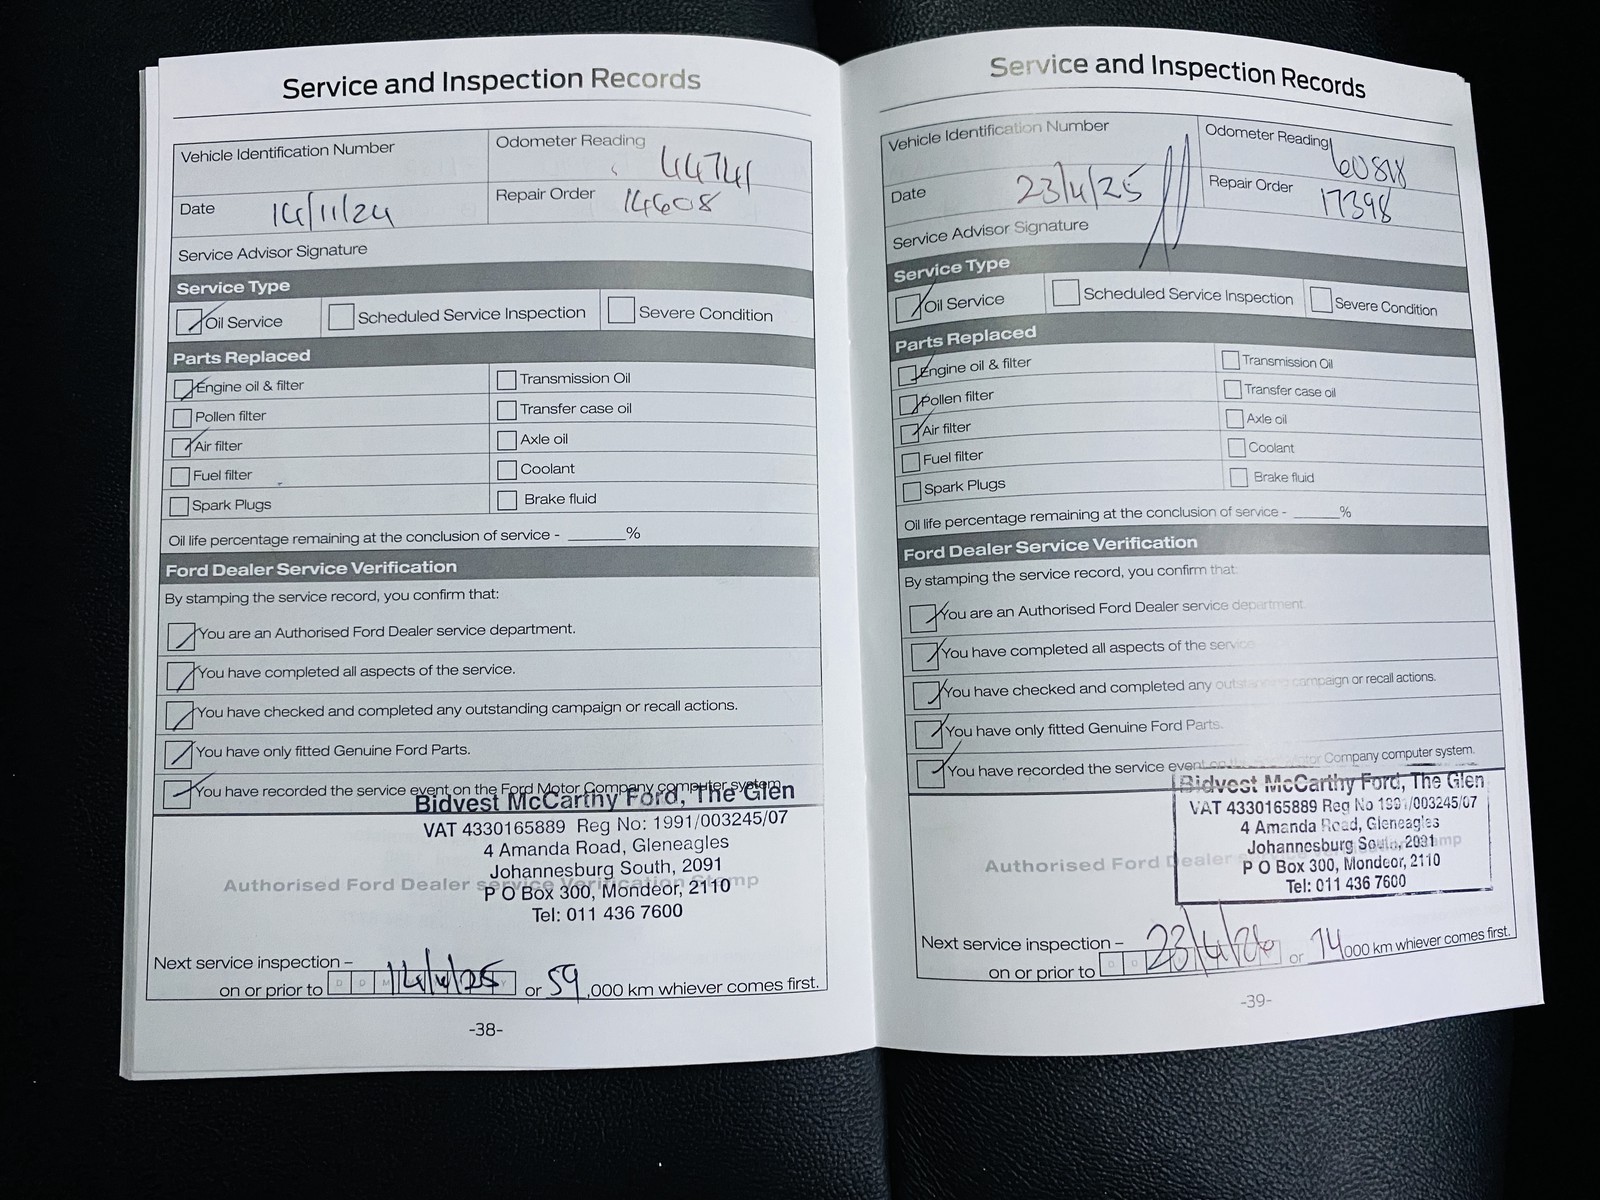 Service and Inspection Records
Vehicle Identification Number
Odometer Reading
44741
Date 14/11/24
Repair Order 14608
Service Advisor Signature
Service Type
Oil Service
Scheduled Service Inspection
Severe Condition
Parts Replaced
Engine oil & filter
Transmission Oil
Pollen filter
Transfer case oil
Air filter
Axle oil
Fuel filter
Coolant
Spark Plugs
Brake fluid
Oil life percentage remaining at the conclusion of service - ______%
Ford Dealer Service Verification
By stamping the service record, you confirm that:
You are an Authorised Ford Dealer service department.
You have completed all aspects of the service.
You have checked and completed any outstanding campaign or recall actions.
You have only fitted Genuine Ford Parts.
You have recorded the service event on the Ford Motor Company computer system.
Bidvest McCarthy Ford, The Glen
VAT 4330165889 Reg No: 1991/003245/07
4 Amanda Road, Gleneagles
Johannesburg South, 2091
Authorised Ford Dealer service Verification Stamp
P O Box 300, Mondeor, 2110
Tel: 011 436 7600
Next service inspection –
on or prior to 14/11/25 or 59,000 km whiever comes first.
-38-
Service and Inspection Records
Vehicle Identification Number
Odometer Reading
Date 23/4/25
Repair Order 17398
Service Advisor Signature
Service Type
Oil Service
Scheduled Service Inspection
Severe Condition
Parts Replaced
Engine oil & filter
Transmission Oil
Pollen filter
Transfer case oil
Air filter
Axle oil
Fuel filter
Coolant
Spark Plugs
Brake fluid
Oil life percentage remaining at the conclusion of service - ______%
Ford Dealer Service Verification
By stamping the service record, you confirm that:
You are an Authorised Ford Dealer service department.
You have completed all aspects of the service
You have checked and completed any outstanding campaign or recall actions.
You have only fitted Genuine Ford Parts.
You have recorded the service event on the Motor Company computer system.
Bidvest McCarthy Ford, The Glen
VAT 4330165889 Reg No 1991/003245/07
4 Amanda Road, Gleneagles
Johannesburg South, 2091
Authorised Ford Dealer
P O Box 300, Mondeor, 2110
Tel: 011 436 7600
Next service inspection –
on or prior to 23/4/26 or 74,000 km whiever comes first.
-39-